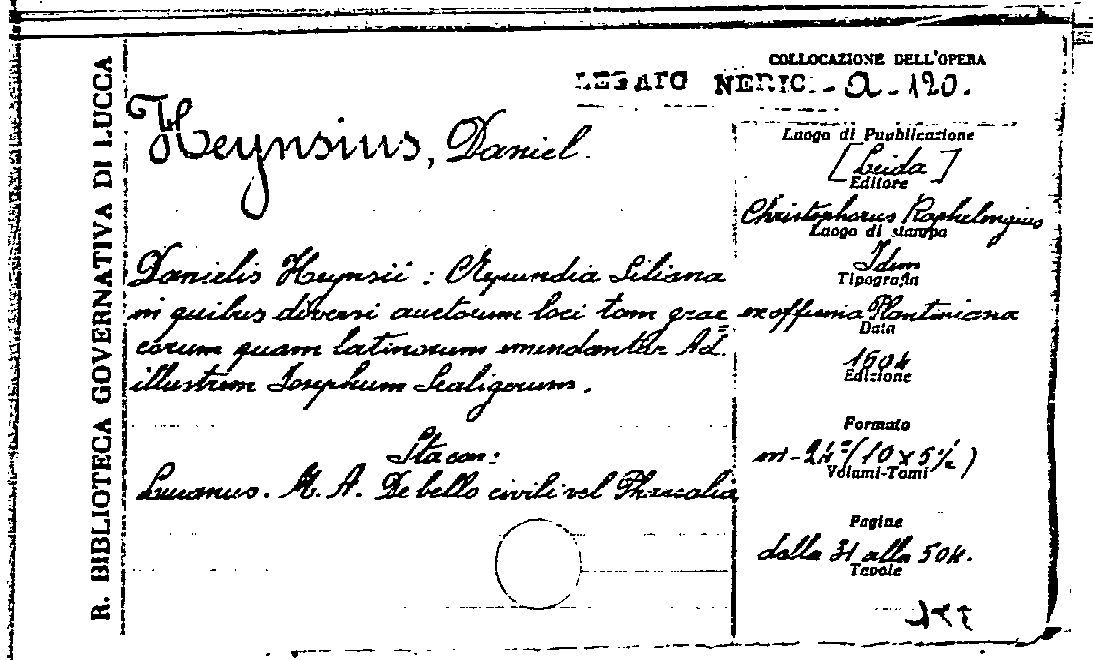 R. BIBLIOTECA GOVERNATIVA DI LUCCA
COLLOCAZIONE DELL'OPERA
LEGATO NERIC. - A - 120.
Heynsius, Daniel.
Danielis Heynsii : Crepundia Siliana
in quibus diversi auctorum loci tam grae
corum quam latinorum emendantur Ad
illustrem Josephum Scaligerum.
Sta con:
Lucanus. M. A. De bello civili vel Pharsalia
Luogo di Pubblicazione
[Leida]
Editore
Christophorus Raphelengius
Luogo di stampa
Idem
Tipografia
ex officina Plantiniana
Data
1604
Edizione
Formato
in-24° (10 x 5½)
Volumi-Tomi
Pagine
dalla 31 alla 504.
Tavole